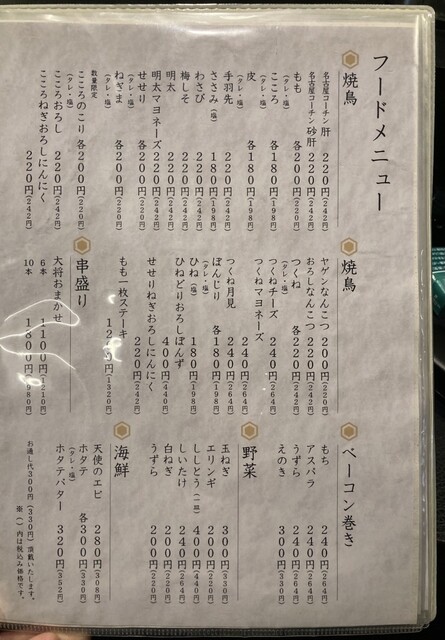 フードメニュー
焼鳥
名古屋コーチン 肝 220円(242)
名古屋コーチン 砂肝 220円(242)
もも (タレ・塩) 各200円(220)
こころ (タレ・塩) 各180円(198)
皮 (タレ・塩) 各180円(198)
手羽先 220円(242)
ささみ(塩) 180円(198)
わさび 220円(242)
梅しそ 220円(242)
明太 220円(242)
明太マヨネーズ 220円(242)
せせり (タレ・塩) 各200円(220)
ねぎま (タレ・塩) 各200円(220)
数量限定
こころのこり (タレ・塩) 各200円(220)
こころおろし 220円(242)
こころねぎおろしにんにく 220円(242)
焼鳥
ヤゲンなんこつ 200円(220)
おろしなんこつ 220円(242)
つくね (タレ・塩) 各220円(242)
つくねチーズ 240円(264)
つくねマヨネーズ 240円(264)
つくね月見 240円(264)
ぼんじり (タレ・塩) 各180円(198)
ひね(塩) 180円(198)
ひねどりおろしぽんず 400円(440)
せせりねぎおろしにんにく 220円(242)
もも一枚ステーキ 1200円(1320)
串盛り
大将おまかせ
6本 1100円(1210)
10本 1800円(1980)
ベーコン巻き
もち 240円(264)
アスパラ 240円(264)
うずら 240円(264)
えのき 300円(330)
野菜
玉ねぎ 300円(330)
エリンギ 200円(220)
ししとう(一皿) 400円(440)
しいたけ 240円(264)
白ねぎ 200円(220)
うずら 200円(220)
海鮮
天使のエビ 280円(308)
ホタテ (タレ・塩) 各300円(330)
ホタテバター 320円(352)
お通し代300円(330円)頂戴いたします。
※( )内は税込み価格です。